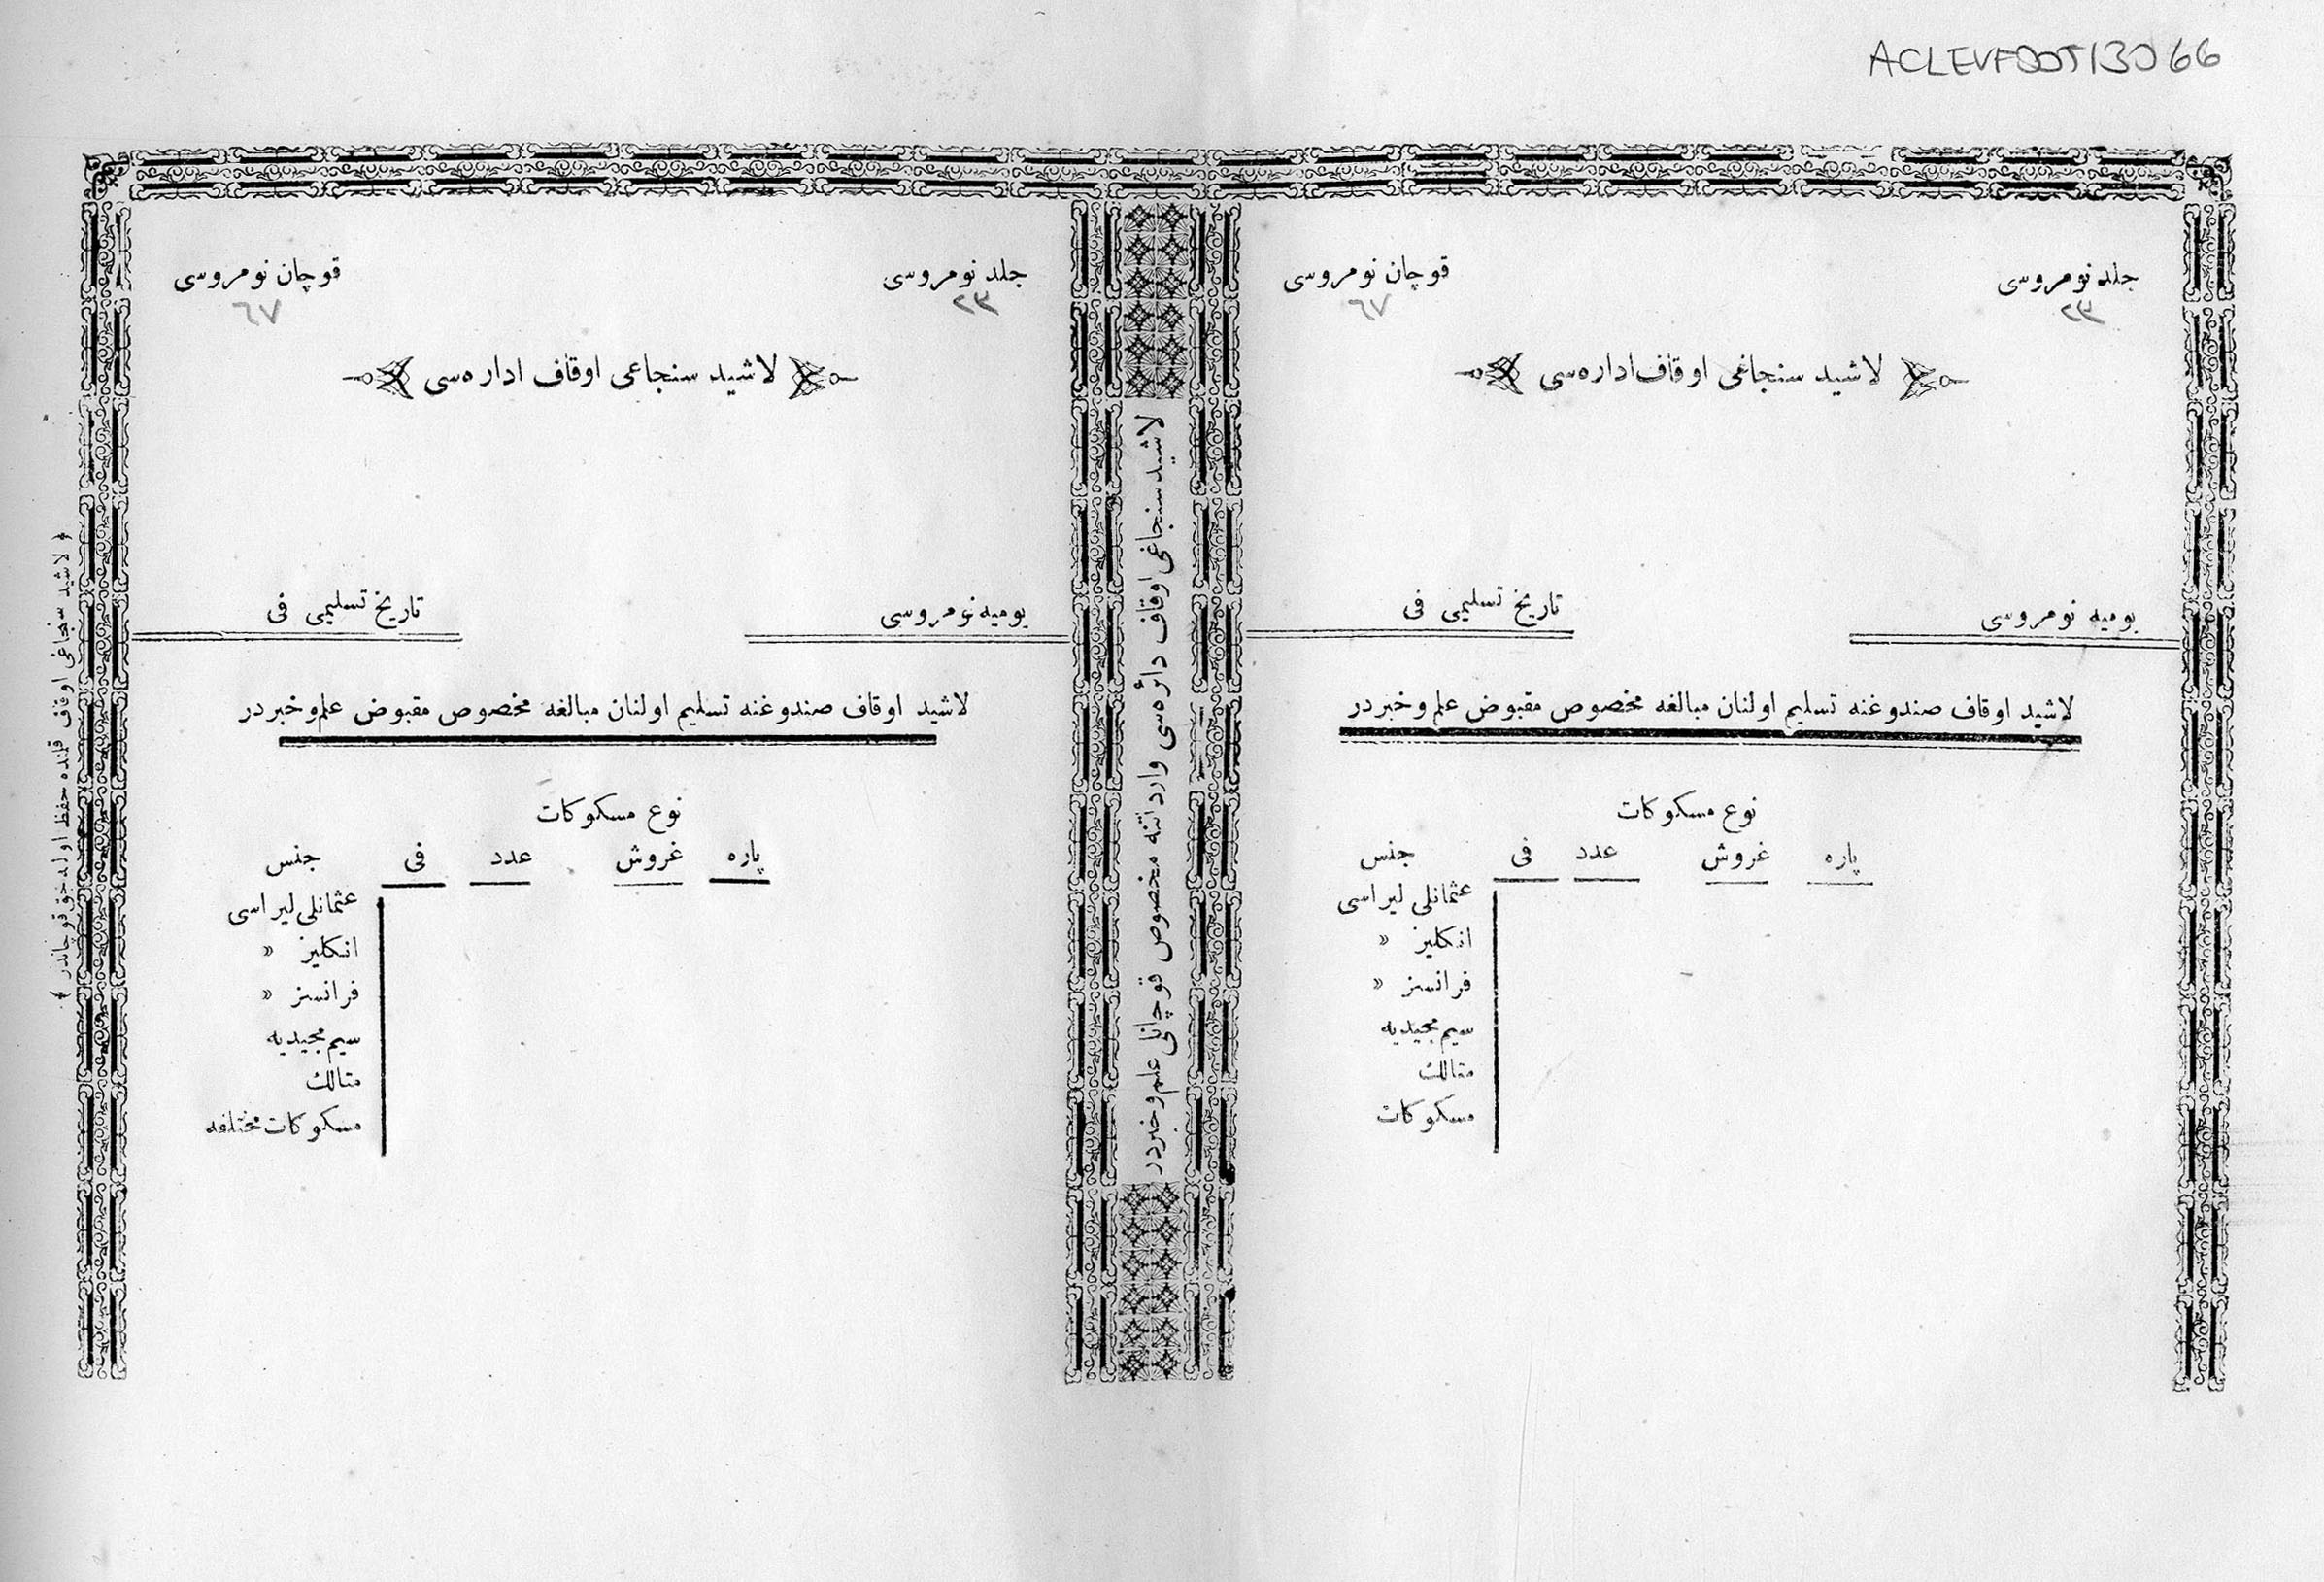 ACLEVFDOT13066
جلد نومروسی
٢٣
قوچان نومروسی
٦٧
لاشید سنجاغی اوقاف اداره‌سی
یومیه نومروسی
تاریخ تسلیمی فی
لاشید اوقاف صندوغنه تسلیم اولنان مبالغه مخصوص مقبوض علم و خبردر
نوع مسکوکات
پاره غروش عدد فی جنس
عثمانلی لیراسی
انکلیز »
فرانسز »
سیم مجیدیه
متالك
مسکوکات
لاشید سنجاغی اوقاف دائره‌سی وارداتنه مخصوص قوچانلی علم و خبردر
جلد نومروسی
٢٣
قوچان نومروسی
٦٧
لاشید سنجاغی اوقاف اداره‌سی
یومیه نومروسی
تاریخ تسلیمی فی
لاشید اوقاف صندوغنه تسلیم اولنان مبالغه مخصوص مقبوض علم و خبردر
نوع مسکوکات
پاره غروش عدد فی جنس
عثمانلی لیراسی
انکلیز »
فرانسز »
سیم مجیدیه
متالك
مسکوکات مختلفه
﴿ لاشید سنجاغی اوقاف قلمنده حفظ اوله‌جق قوچاندر ﴾